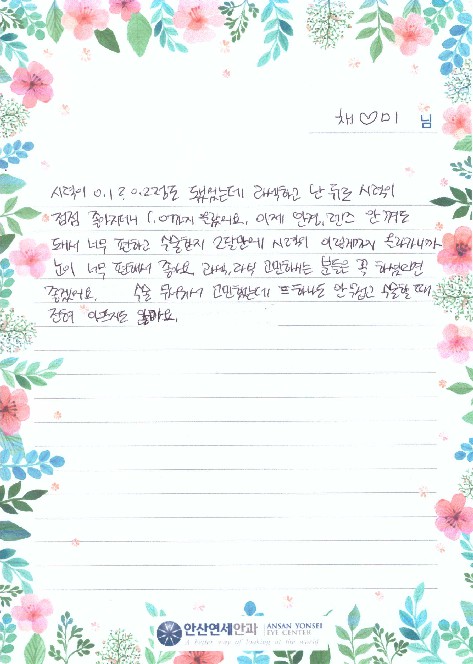 채♡미 님
시력이 0.1? 0.2정도 됐었는데 라섹하고 난 뒤로 시력이
점점 좋아지더니 1.0까지 올랐어요. 이제 안경, 렌즈 안껴도
돼서 너무 편하고 수술한지 2달만에 시력이 이렇게까지 올라가니까
눈이 너무 편해서 좋아요 라식, 라섹 고민하는 분들은 꼭 하셨으면
좋겠어요. 수술 무서워서 고민했는데 하나도 안 무섭고 수술할 때
전혀 아프지도 않아요.
안산연세안과 ANSAN YONSEI EYE CENTER
A better way of looking at the world